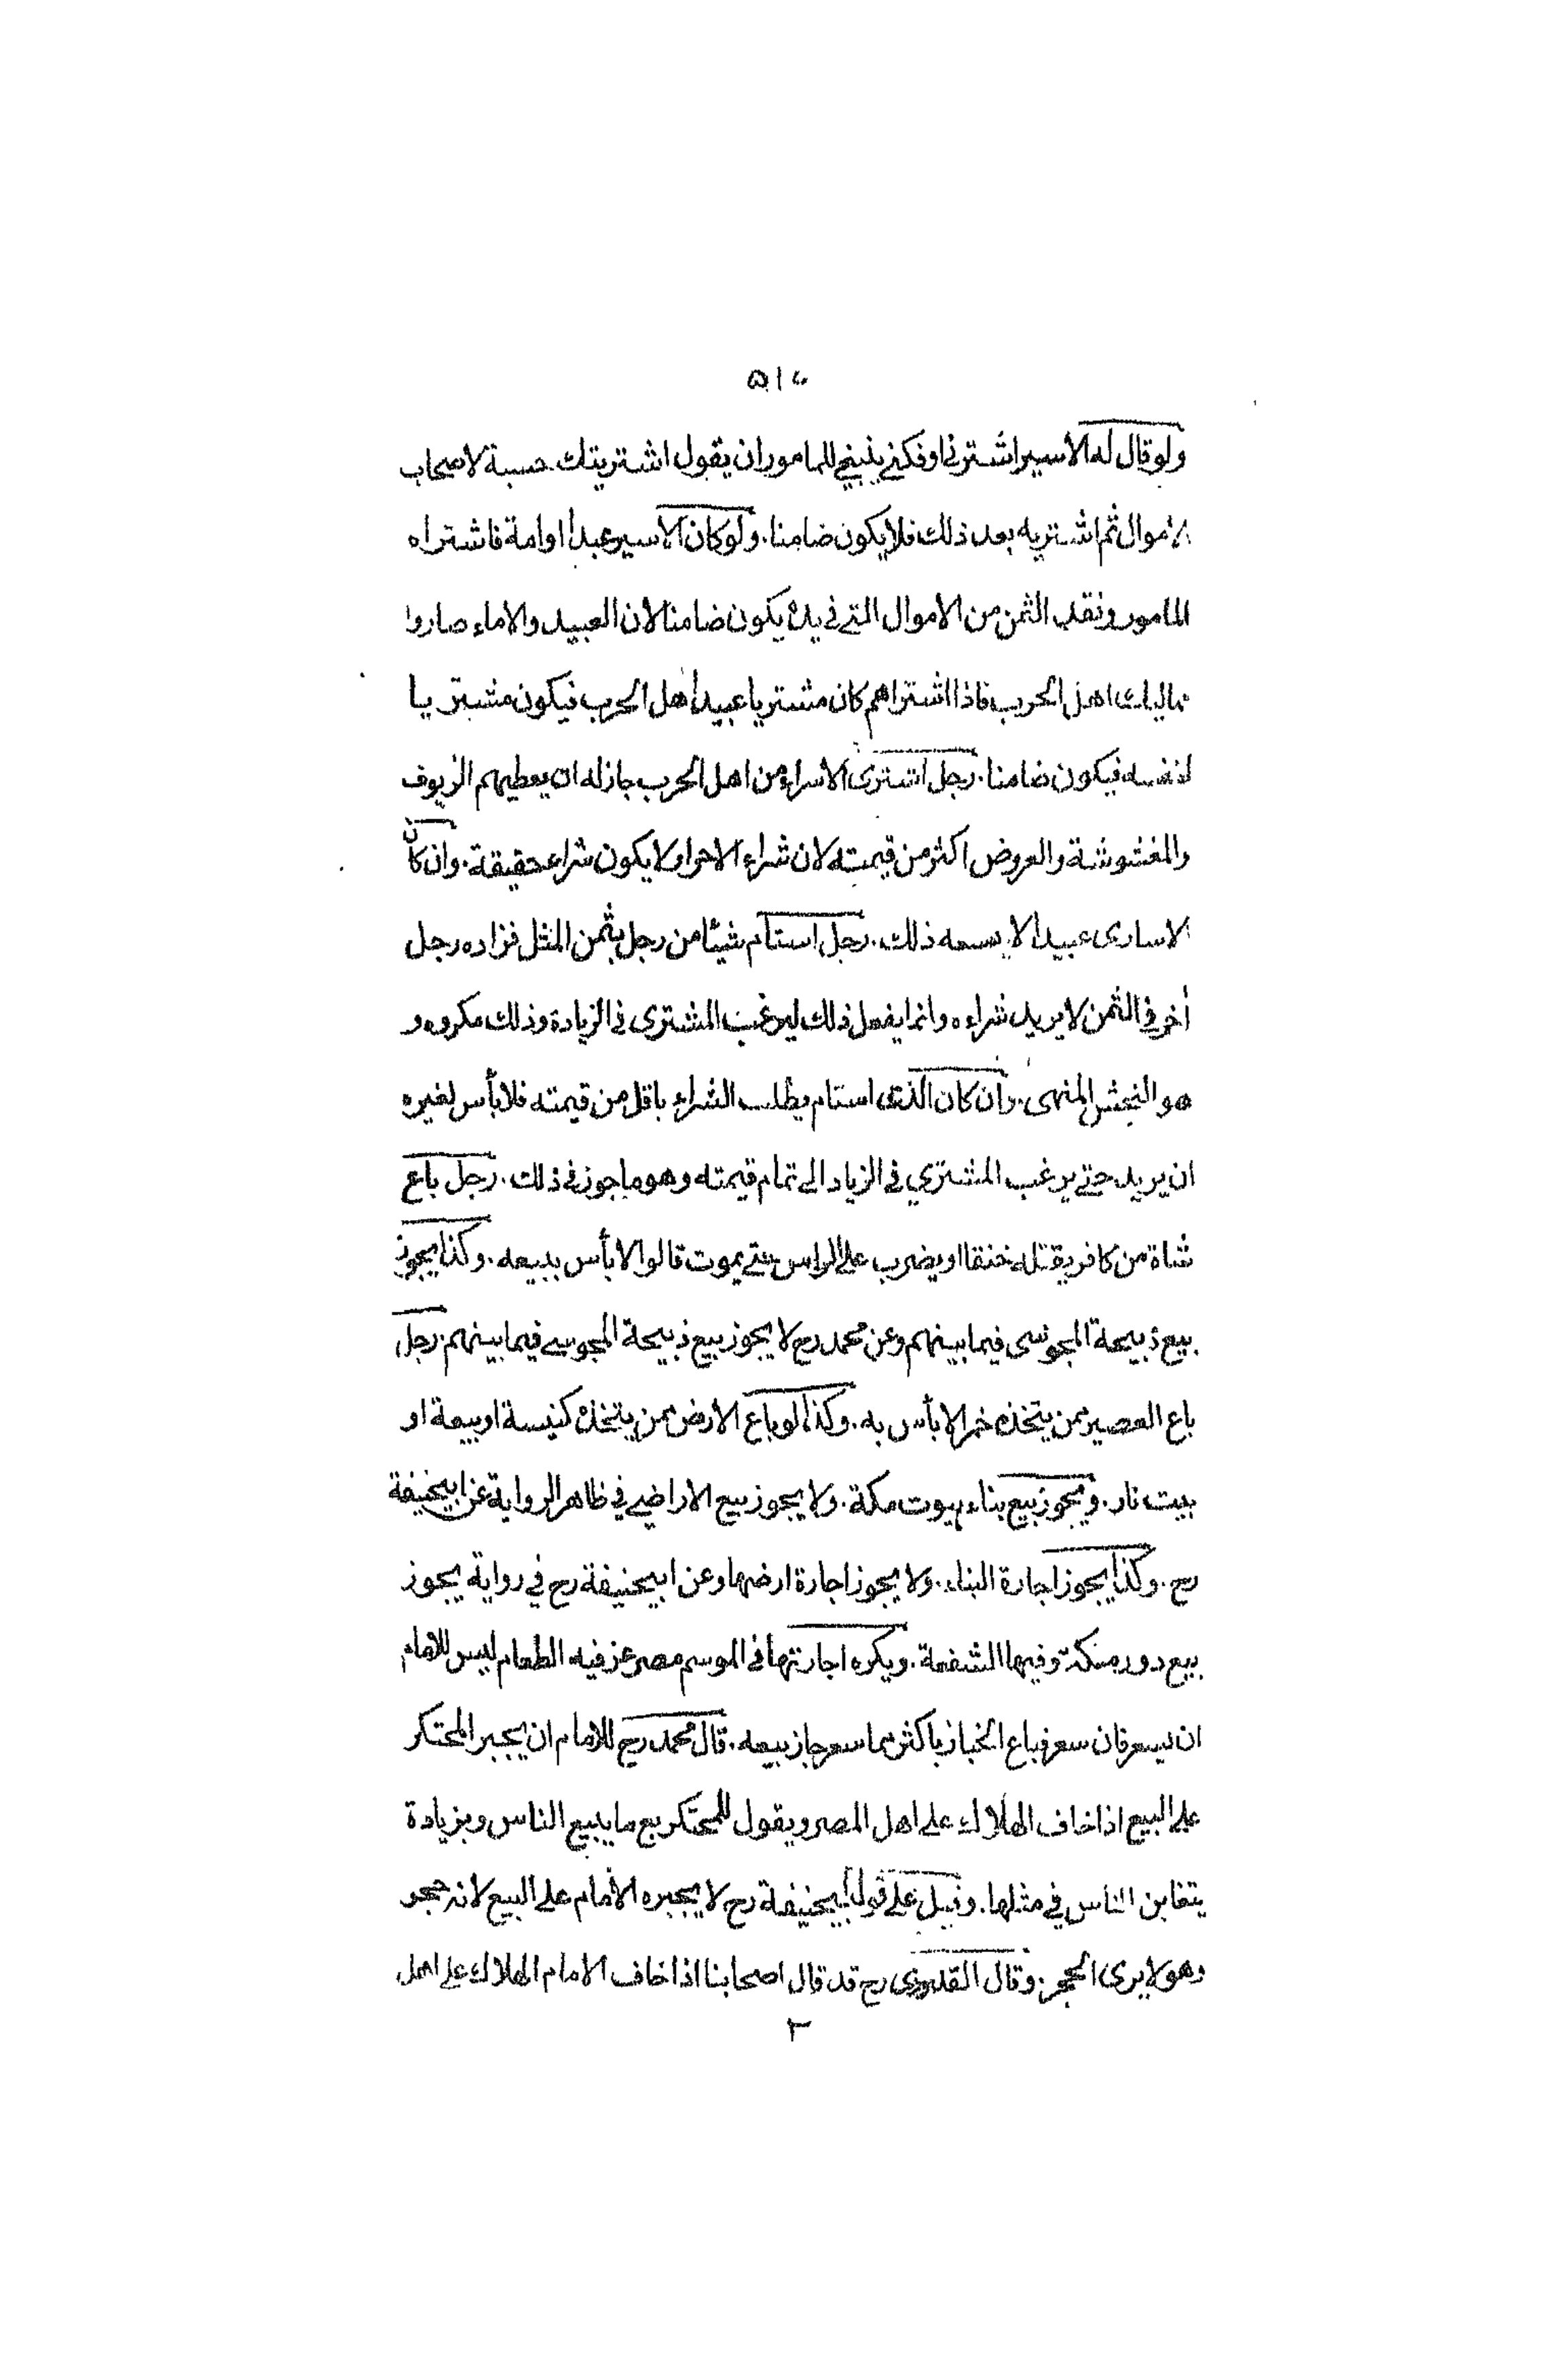 ٥١٤
ولو قال له الاسير اشترنى او فكنى ينبغى للمامور ان يقول اشتريتك حسبة لاصحاب
الاموال ثم اشتريه بعد ذلك فلا يكون ضامنا. ولو كان الاسير عبدا او امة فاشتراه
المامور ونقد الثمن من الاموال التى فى يده يكون ضامنا لان العبيد والاماء صاروا
مماليك اهل الحرب فاذا اشتراهم كان مشتريا عبيد اهل الحرب فيكون مشتريا
لنفسه فيكون ضامنا. رجل اشترى الاسراء من اهل الحرب جاز له ان يعطيهم الزيوف
والمغشوشة والعروض اكثر من قيمته لان شراء الاحرار لا يكون شراء حقيقة. وان كان
الاسارى عبيدا لا يسعه ذلك. رجل استام شيئا من رجل بثمن المثل فزاده رجل
أخر فى الثمن لا يريد شراءه وانما يفعل ذلك ليرغب المشترى فى الزيادة وذلك مكروه و
هو النجش المنهى. وان كان الذى استام يطلب الشراء باقل من قيمته فلا بأس لغيره
ان يريد حتى يرغب المشتري في الزياد الى تمام قيمته وهو ماجوز فى ذلك. رجل باع
شاة من كافر يقتله خنقا او يضرب على الراس حتى يموت قالوا لا بأس ببيعه. وكذا يجوز
بيع ذبيحة المجوسى فيما بينهم وعن محمد رح لا يجوز بيع ذبيحة المجوسى فيما بينهم. رجل
باع العصير ممن يتخذه خمرا لا بأس به. وكذا لو باع الارض ممن يتخذه كنيسة او بيعة او
بيت نار. ويجوز بيع بناء بيوت مكة. ولا يجوز بيع الاراضى في ظاهر الرواية عن ابيحنيفة
رح. وكذا يجوز اجارة البناء. ولا يجوز اجارة ارضها وعن ابيحنيفة رح في رواية يجوز
بيع دور مكة وفيها الشفعة. ويكره اجارتها فى الموسم مصر عز فيه الطعام ليس للامام
ان يسعر فان سعر فباع الخباز باكثر مما سعر جاز بيعه. قال محمد رح للامام ان يجبر المحتكر
على البيع اذا خاف الهلاك على اهل المصر ويقول للمحتكر بع ما يبيع الناس وبزيادة
يتغابن الناس في مثلها. وقيل على قول ابيحنيفة رح لا يجبره الامام على البيع لانه حجر
وهو لا يرى الحجر. وقال القدورى رح قد قال اصحابنا اذا خاف الامام الهلاك على اهل